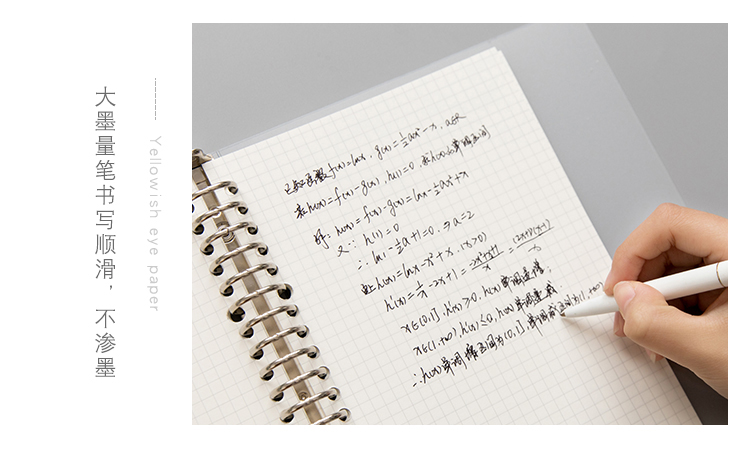 大墨量笔书写顺滑，不渗墨
Yellowish eye paper
已知函数f(x)=lnx，g(x)=½ax²-x，a∈R
若h(x)=f(x)-g(x)，h(1)=0，求h(x)的单调区间
解：h(x)=f(x)-g(x)=lnx-½ax²+x
又∵h(1)=0
∴ln1-½a+1=0，⇒a=2
h(x)=lnx-x²+x，(x>0)
h'(x)=1/x-2x+1=
x∈(0,1)，h'(x)>0，h(x)单调递增；
x∈(1,+∞)，h'(x)<0，h(x)单调递减
∴h(x)单调增区间为(0,1]，单调减区间为[1,+∞)